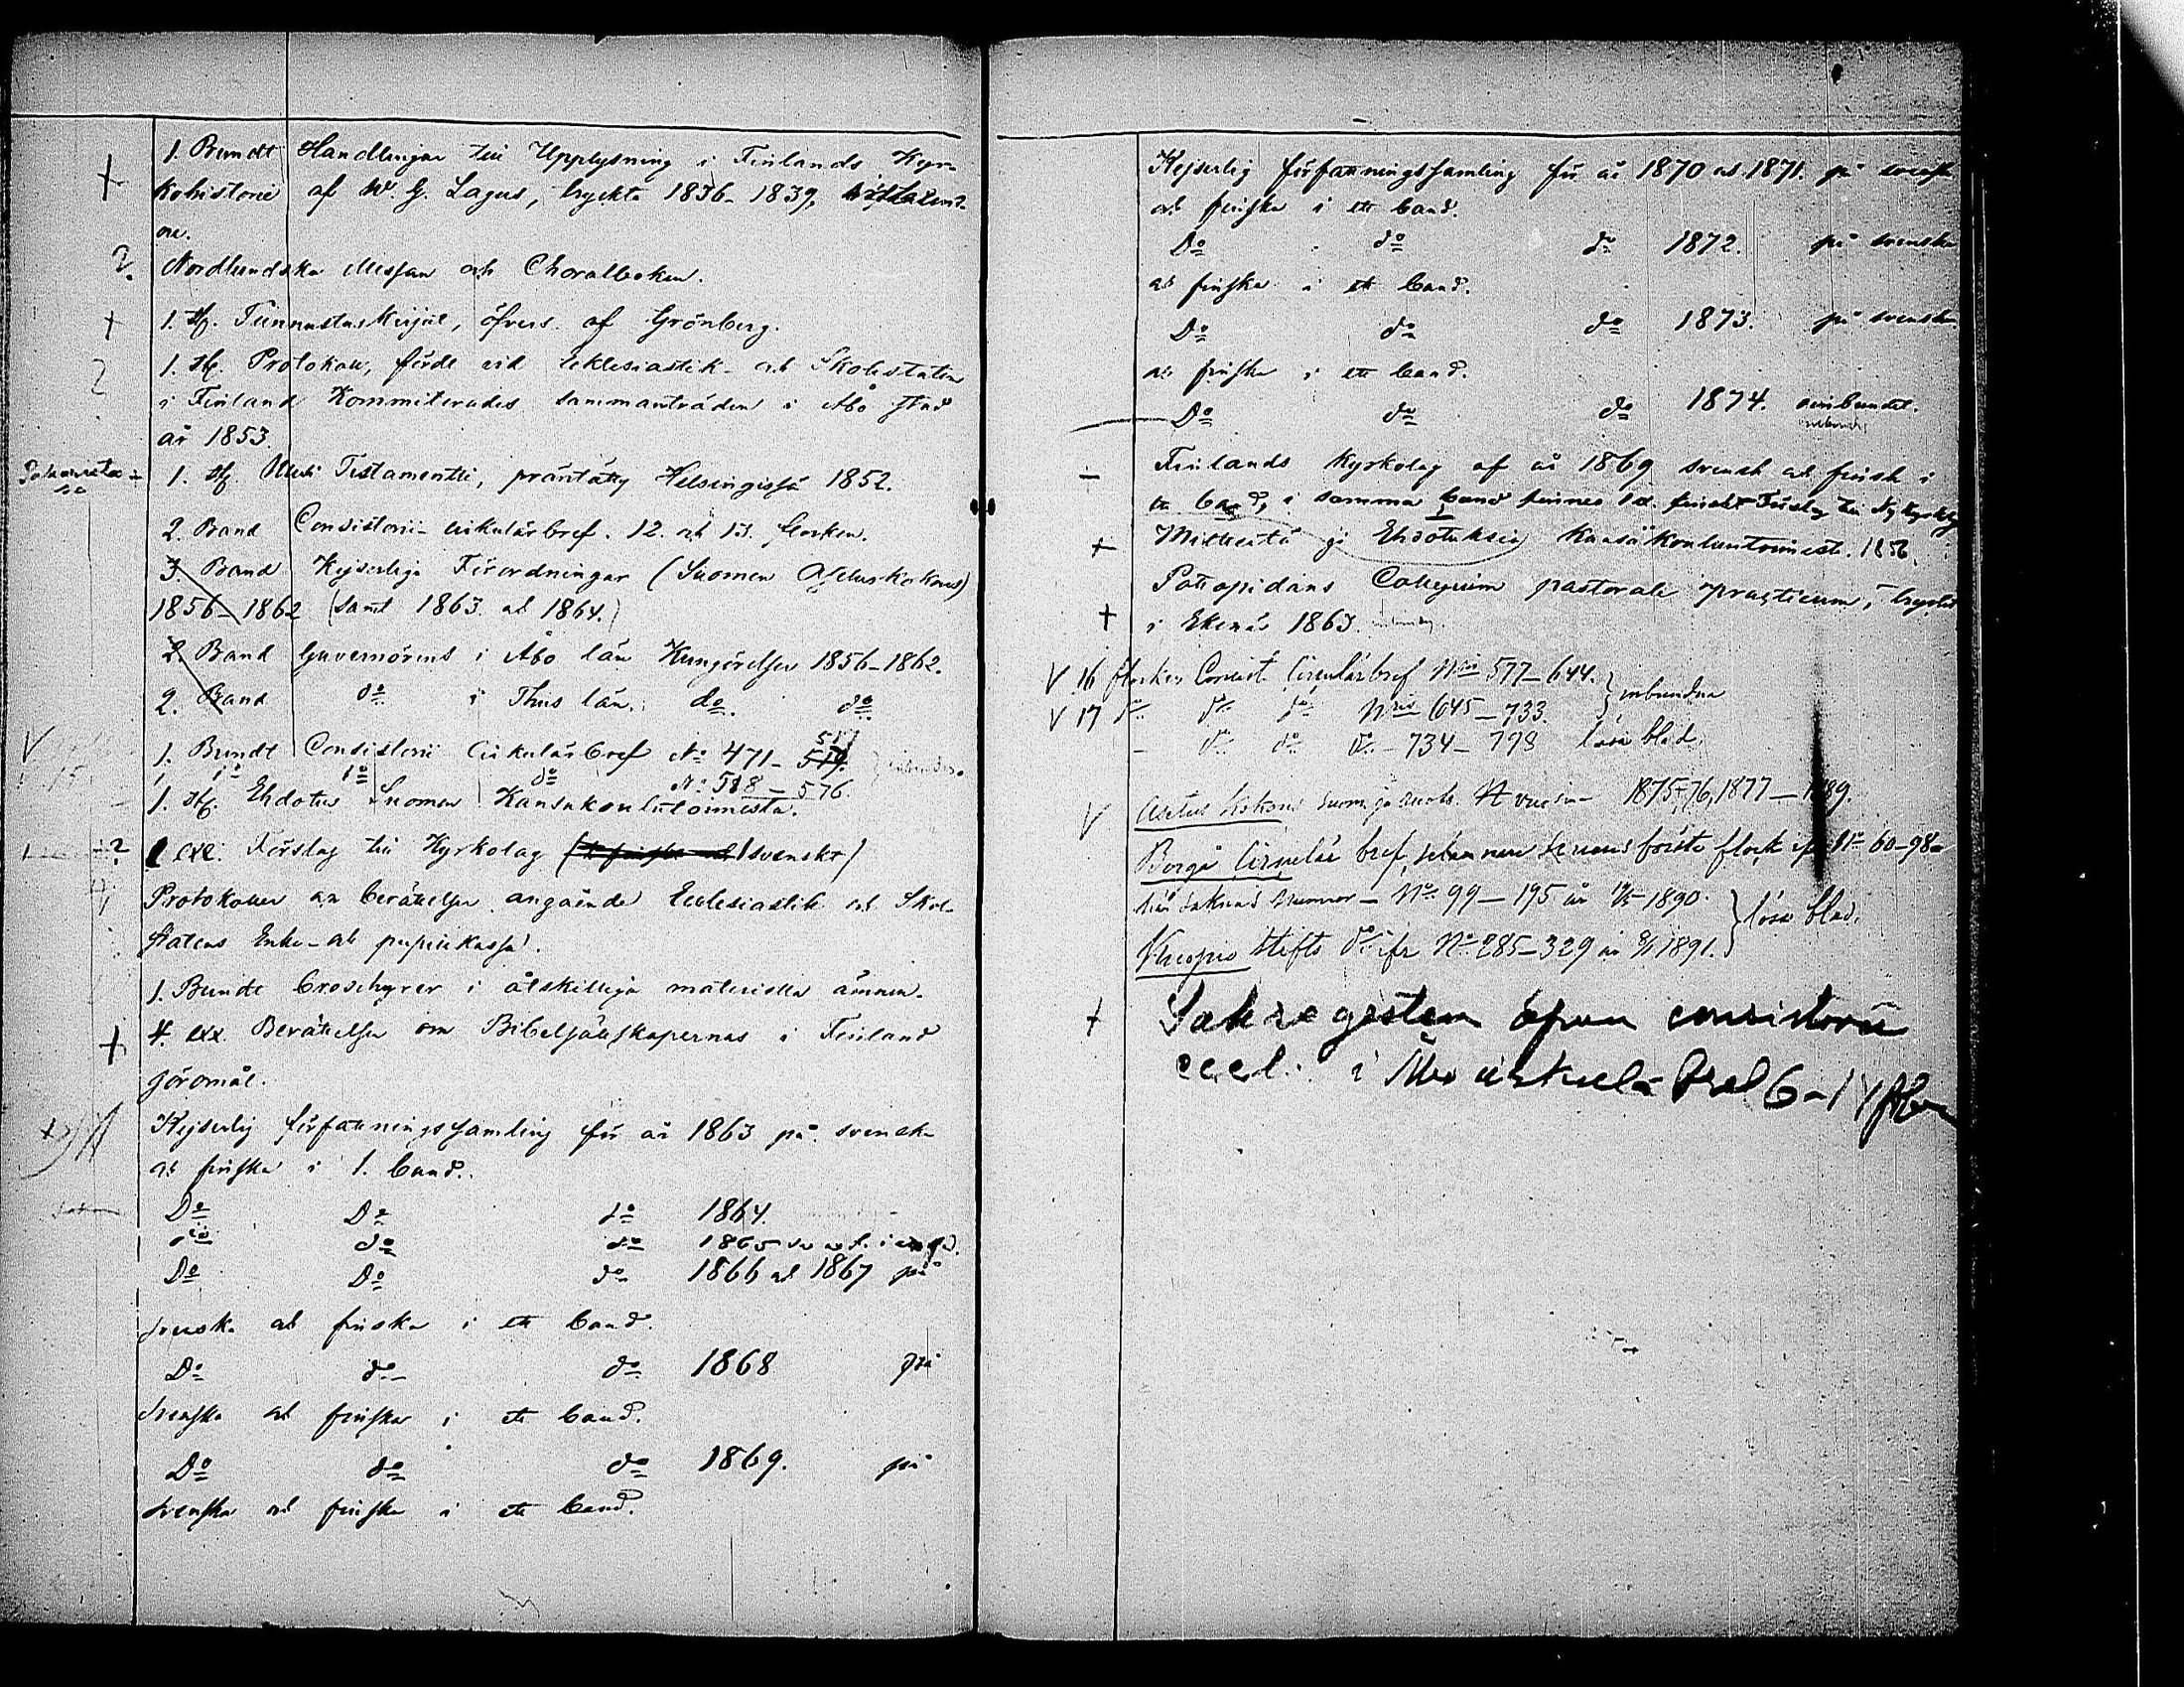 1. Bundt Handlingar till Upplysning i Finlands Kyr-
kohistorie af W. G. Lagus, tryckta 1836-1839,
ne.
? Nordlundska Messan och Choralboken.
+ 1. st. Tunnustuskirjat, öfvers. af Grönberg.
1. st. Protokoll, förde vid Ecklesiastik- och Skolestaten
i Finland Kommiterades sammanträden i Åbo stad
år 1853.
1. st. Uusi Testamentti, präntätty Helsingissä 1852.
2. Band Consistorii cirkulärbref. 12. och 13. flocken.
3. Band Kejserliga Förordningar (Suomen Asetuskokous)
1856-1862 (samt 1863. och 1864.)
2. Band Guvernörens i Åbo län Kungörelser 1856-1862.
2. Band do i Thus län. do. do.
V 1. Bundt Consistorii Cirkulärbref No 471-517
1 do do do No 518-576
1. st. Ehdotus Suomen Kansakoulutoimesta.
? 1 exx. Förslag till Kyrkolag (svenskt)
Protokoller och berättelser angående Ecclesiastik och Skol-
statens Enke- och pupillkassa.
1. Bundt broschyrer i åtskilliga materiella ämnen.
+ 4. exx. Berättelser om Bibelsällskapernas i Finland
göromål.
Kejserlig författningssamling för år 1863 på svenska
och finska i 1. band.
Do Do do 1864.
do do do 1865
Do Do do 1866 och 1867 på
svenska och finska i ett band.
Do do do 1868 på
svenska och finska i ett band.
Do do do 1869. på
svenska och finska i ett band.
Kejserlig författningssamling för år 1870 och 1871. på svenska
och finska i ett band.
Do do do 1872. på svenska
och finska i ett band.
Do do do 1873. på svenska
och finska i ett band.
Do do do 1874. oinbundet.
Finlands Kyrkolag af år 1869 svensk och finsk i
ett band, i samma band finnes Förslag till Ny Kyrkolag
Mietteitä ja Ehdotuksia Kansakouluntoimesta. 1856
Pontopidans Collegium pastorale practicum, tryckt
+ i Ekenäs 1863.
V 16 flocken Consist. Circulärbref Nris 577-644. } inbundna
V 17 do do do Nris 645-733.
- do do do - 734-798 lösa blad.
V Asetus Kokous suom. ja ruots. vuosina 1875-76, 1877-1889.
Borgå Circulär bref första flock No 60-98
No 99-195 år 1890. } lösa blad.
Kuopio stifts do No 285-329 år 1891.
+ Sakregister öfver consistorii
eccl. i Åbo cirkulär bref 6-17